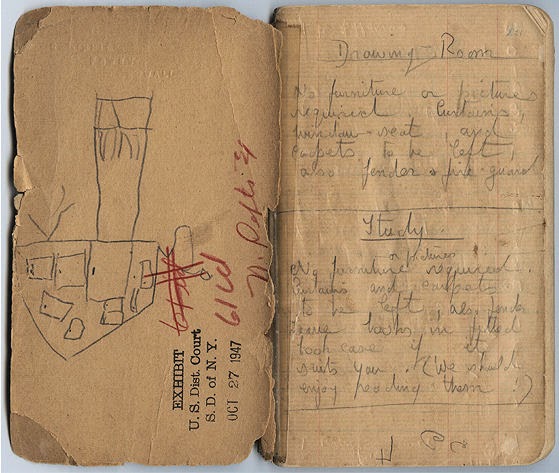 EXHIBIT
U. S. Dist. Court
S. D. of N. Y.
OCT 27 1947
Drawing Room
No furniture or pictures
required. Curtains,
window-seat, and
carpets to be left,
also fender & fire guard
Study.
or pictures
No furniture required.
Curtains and carpets
to be left, also fender
Leave books in fitted
book case if it
suits you. (We should
enjoy reading them!)